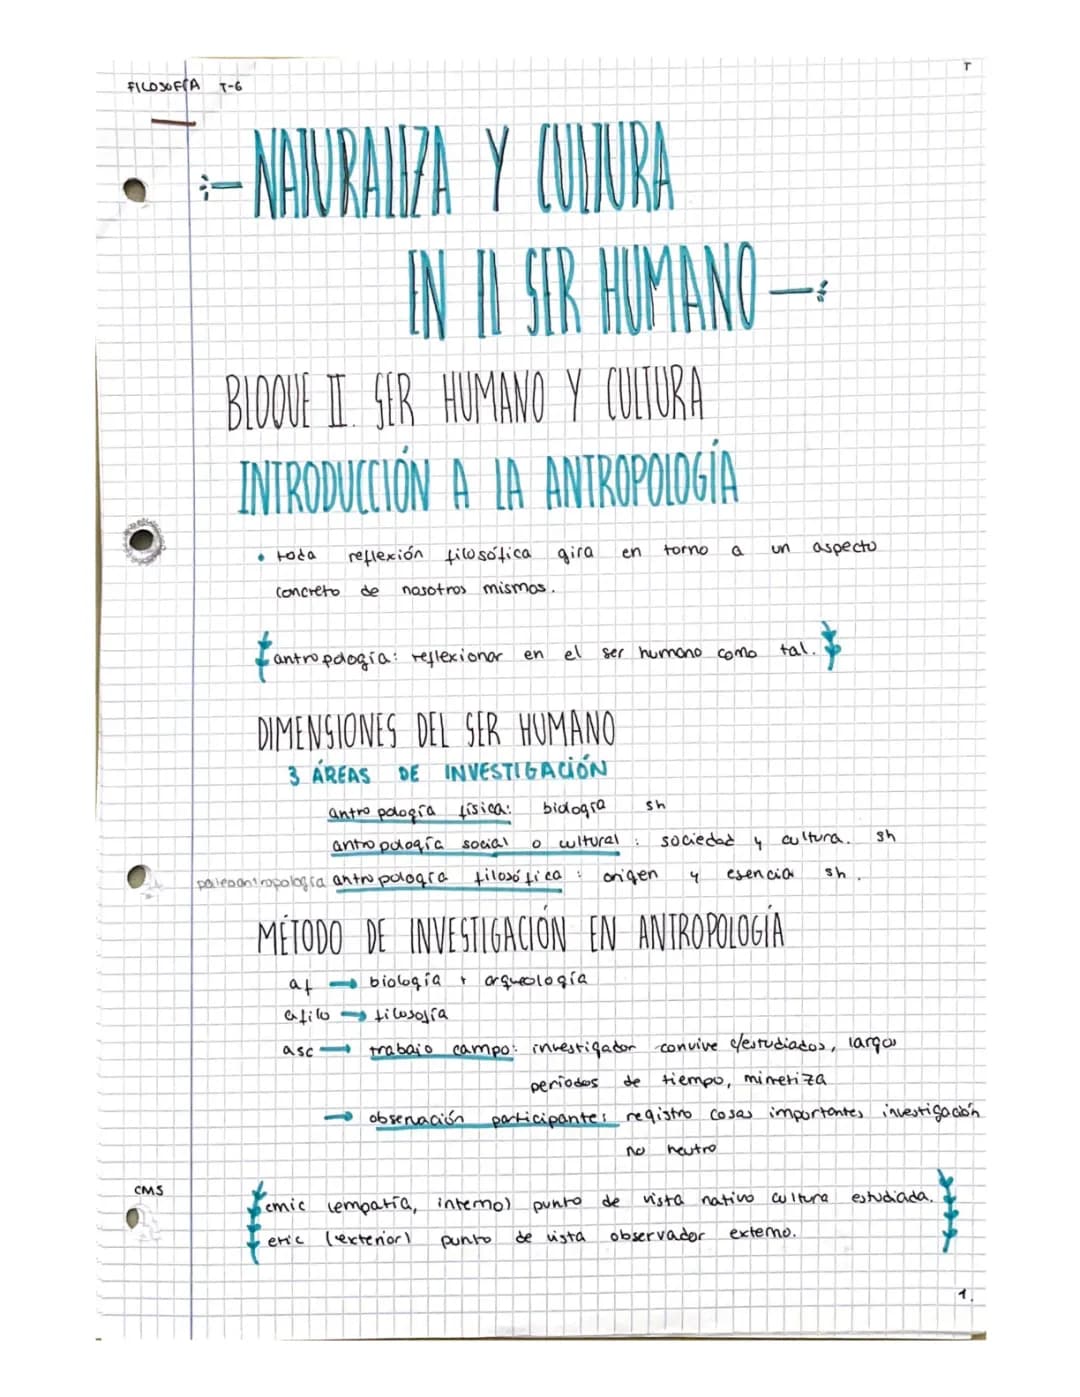 FILOSOFÍA T-6
T
NATURALEZA Y CULTURA
EN EL SER HUMANO
BLOQUE II. SER HUMANO Y CULTURA
INTRODUCCIÓN A LA ANTROPOLOGÍA
• toda reflexión filosófica gira en torno a un aspecto
concreto de nosotros mismos.
antropología: reflexionar en el ser humano como tal.
DIMENSIONES DEL SER HUMANO
3 ÁREAS DE INVESTIGACIÓN
antropología física: biología sh
antropología social o cultural: sociedad y cultura. sh
paleoantropología antropología filosófica: origen y esencia sh.
MÉTODO DE INVESTIGACIÓN EN ANTROPOLOGÍA
af → biología + arqueología
afilo → filosofía
asc → trabajo campo: investigador convive c/estudiados, largos
períodos de tiempo, mimetiza
→ observación participante: registro cosas importantes investigación
no neutro
CMS
emic (empatía, interno) punto de vista nativo cultura estudiada.
etic (exterior) punto de vista observador externo.
1.